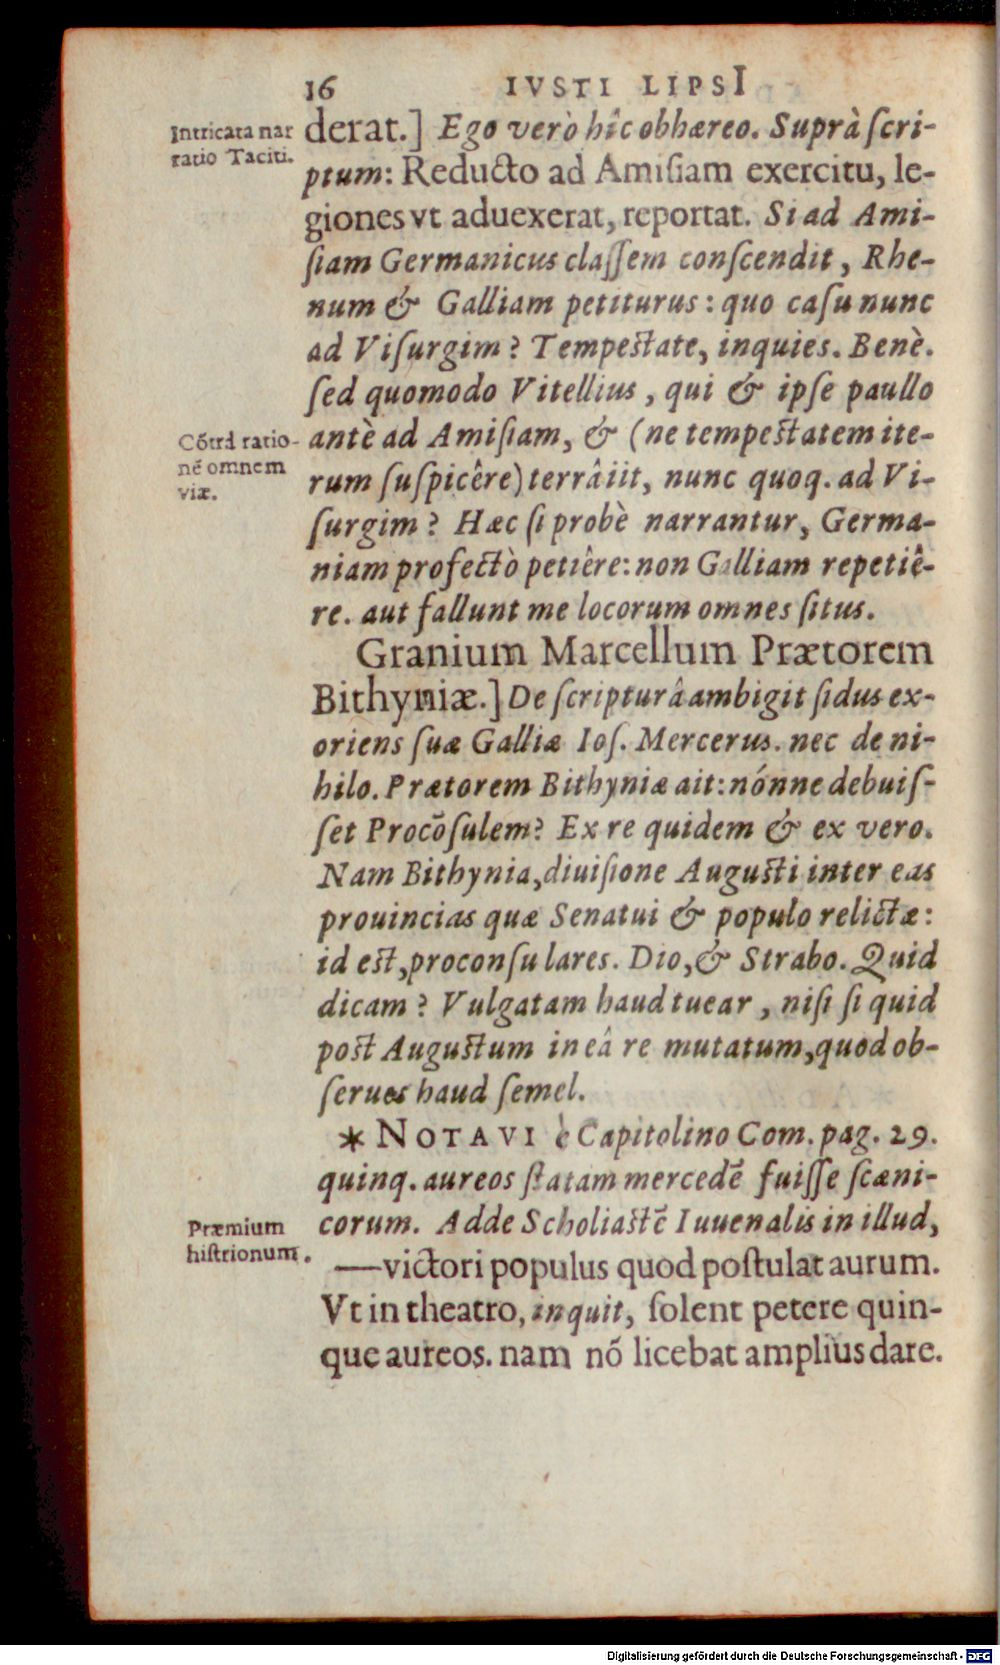 16 IVSTI LIPSI
Intricata nar
ratio Taciti.
derat.] Ego verò hîc obhæreo. Suprà ſcri-
ptum: Reducto ad Amiſiam exercitu, le-
giones vt aduexerat, reportat. Si ad Ami-
ſiam Germanicus claſſem conſcendit, Rhe-
num & Galliam petiturus: quo caſu nunc
ad Viſurgim? Tempeſtate, inquies. Benè.
ſed quomodo Vitellius, qui & ipſe paullo
Cōtrà ratio-
nē omnem
viæ.
antè ad Amiſiam, & (ne tempeſtatem ite-
rum ſuſpicêre) terrâ iit, nunc quoq. ad Vi-
ſurgim? Hæc ſi probè narrantur, Germa-
niam profectò petiêre: non Galliam repetiê-
re. aut fallunt me locorum omnes ſitus.
Granium Marcellum Prætorem
Bithyniæ.] De ſcripturâ ambigit ſidus ex-
oriens ſuæ Galliæ Ioſ. Mercerus. nec de ni-
hilo. Prætorem Bithyniæ ait: nónne debuiſ-
ſet Procōſulem? Ex re quidem & ex vero.
Nam Bithynia, diuiſione Auguſti inter eas
prouincias quæ Senatui & populo relictæ:
id eſt, proconſulares. Dio, & Strabo. Quid
dicam? Vulgatam haud tuear, niſi ſi quid
poſt Auguſtum in eâ re mutatum, quod ob-
ſerues haud ſemel.
* NOTAVI è Capitolino Com. pag. 29.
quinq. aureos ſtatam mercedē fuiſſe ſcæni-
Præmium
hiſtrionum.
corum. Adde Scholiaſtē Iuuenalis in illud,
—victori populus quod poſtulat aurum.
Vt in theatro, inquit, ſolent petere quin-
que aureos. nam nō licebat amplius dare.
Digitalisierung gefördert durch die Deutsche Forschungsgemeinschaft - DFG